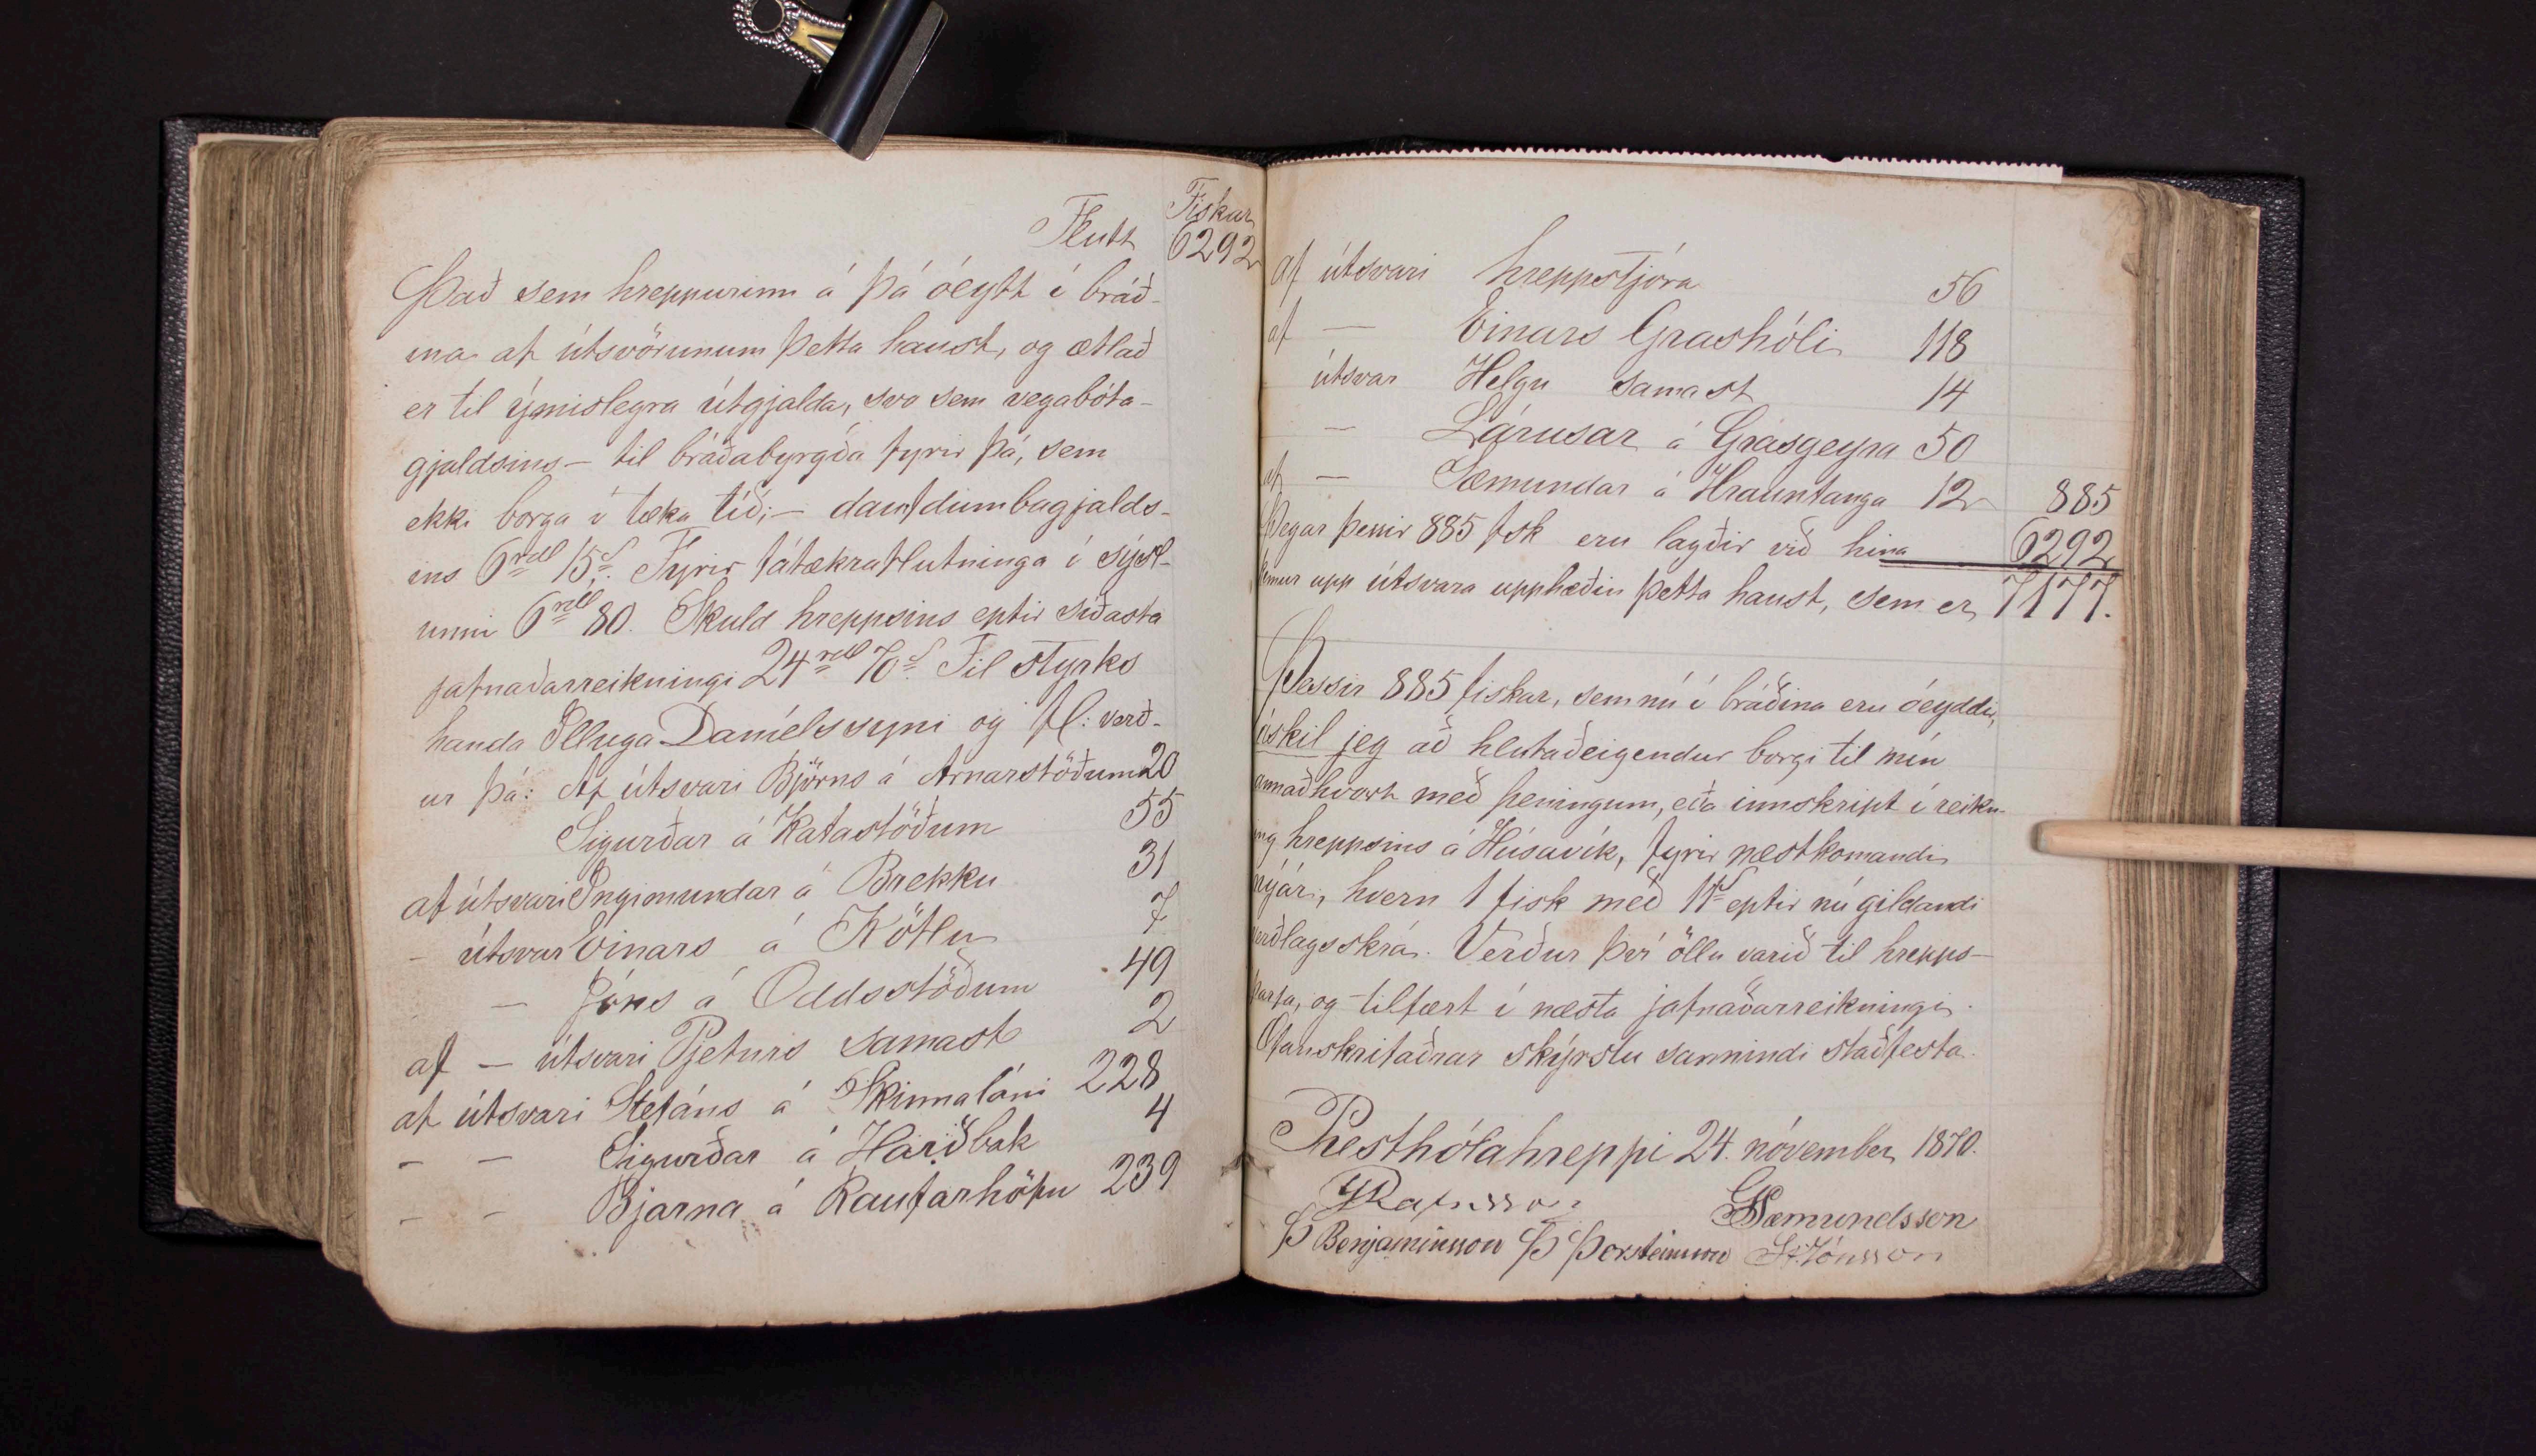 Fiskar
Flutt 6292
Það sem hreppurinn á þá óeytt í bráð-
ina af útsvörunum þetta haust, og ætlað
er til ýmislegra útgjalda, svo sem vegabóta-
gjaldsins – til bráðabyrgða fyrir þá, sem
ekki borga í tæka tíð; – daufdumbagjalds-
ins 6 rdl 15 s. Fyrir fátækraflutninga í sýsl-
unni 6 rdl 80. Skuld hreppsins eptir síðasta
jafnaðarreikningi 24 rdl 70 s. Til styrks
handa Illuga Daníelssyni og fl: verð-
ur þá: Af útsvari Björns á Arnarstöðum 20
Sigurðar á Katastöðum 55
af útsvari Ingimundar á Brekku 31
– útsvar Einars á Kötlu 7
– Jóns á Oddsstöðum 49
af – útsvari Pjeturs samast 2
af útsvari Stefáns á Skinnalóni 228
– – Sigurðar á Harðbak 4
– – Bjarna á Raufarhöfn 239
af útsvari hreppstjóra 56
af — Einars Grashóli 118
útsvar Helgu samast 14
— Lárusar á Grasgeyra 50
af — Sæmundar á Hrauntanga 12 885
Þegar þessir 885 fsk eru lagðir við hina 6292
kemur upp útsvara upphæðin þetta haust, sem er 7177.
Þessir 885 fiskar, sem nú í bráðina eru óeyddir,
áskil jeg að hlutaðeigendur borgi til mín
annaðhvort með peningum, eða innskript í reikn-
ing hreppsins á Húsavík, fyrir næstkomandi
nýár, hvern 1 fisk með 11 s eptir nú gildandi
verðlagsskrá. Verður því öllu varið til hrepps-
þarfa, og tilfært í næsta jafnaðarreikningi.
Ofanskrifaðrar skýrslu sannindi staðfesta.
Presthólahreppi 24. nóvember 1870.
Rafnsson GSæmundsson
Þ Benjamínsson Þ Þorsteinsson St. Jónsson